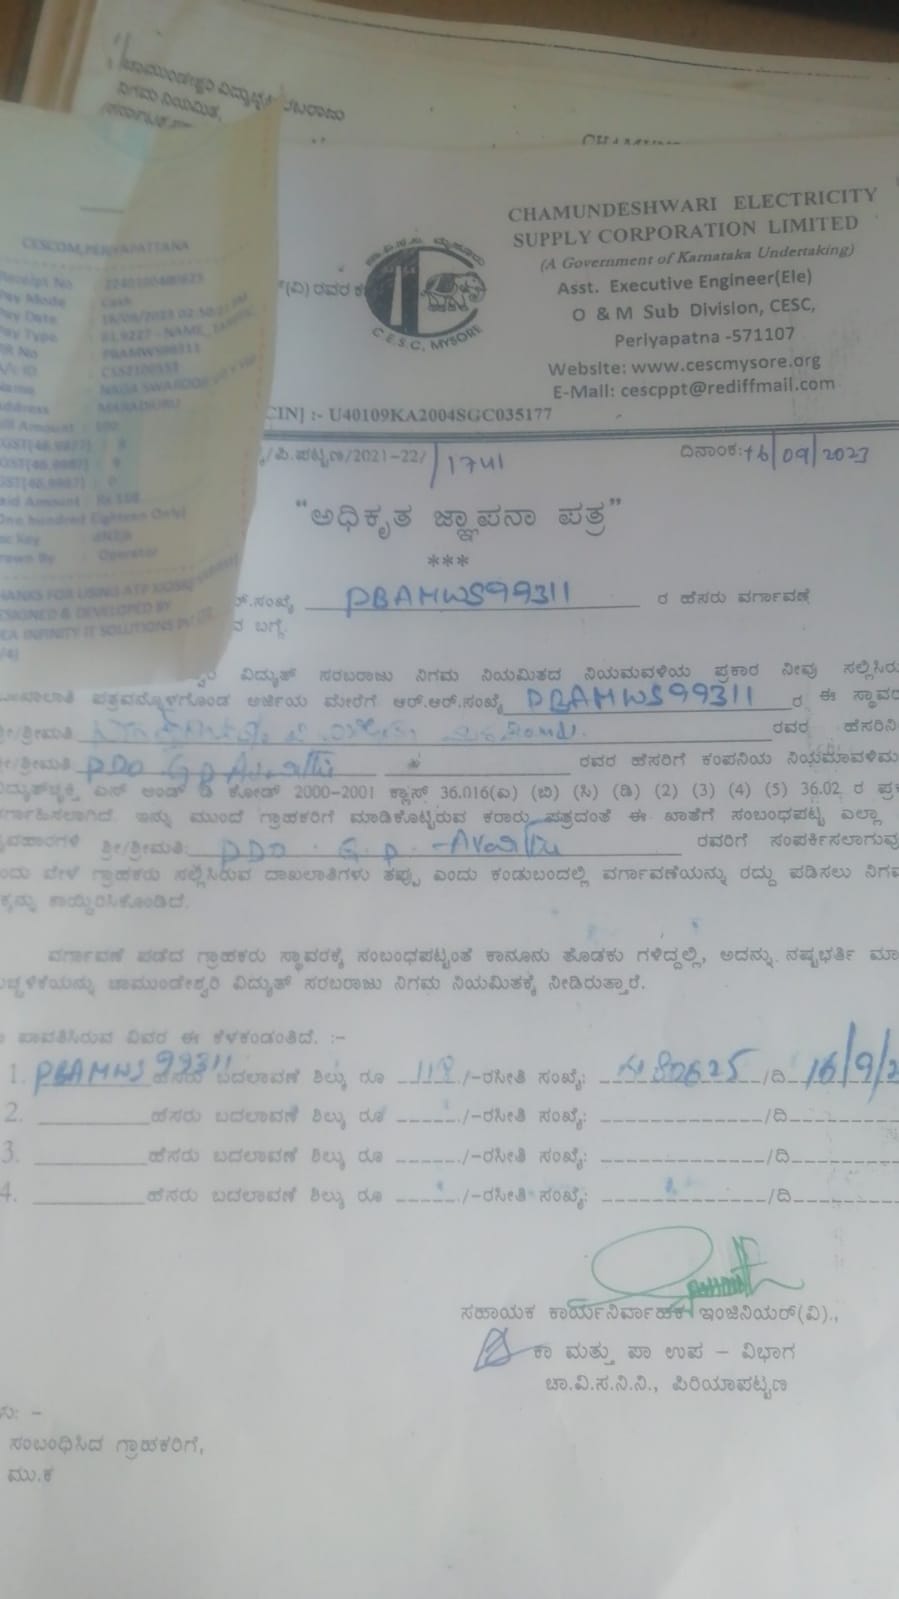 ಚಾಮುಂಡೇಶ್ವರಿ ವಿದ್ಯುಚ್ಛ ಸರಬರಾಜು
ನಿಗಮ ನಿಯಮಿತ,
CESCOM,PERIYAPATTANA
Receipt No
Pay Mode : Cash
Pay Date
Pay Type
RR No : PBAMWS99311
Address
Bill Amount : 100
Paid Amount : Rs 118
One hundred Eighteen Only)
Drawn By : Operator
THANKS FOR USING ATP KIOSK
DESIGNED & DEVELOPED BY
IDEA INFINITY IT SOLUTIONS
(ವಿ) ರವರ ಕ
C.E.S.C, MYSORE
CHAMUNDESHWARI ELECTRICITY
SUPPLY CORPORATION LIMITED
(A Government of Karnataka Undertaking)
Asst. Executive Engineer(Ele)
O & M Sub Division, CESC,
Periyapatna -571107
Website: www.cescmysore.org
E-Mail: cescppt@rediffmail.com
CIN] :- U40109KA2004SGC035177
/ಪಿ.ಪಟ್ಟಣ/2021-22/ /1741 ದಿನಾಂಕ:16/09/2023
“ಅಧಿಕೃತ ಜ್ಞಾಪನಾ ಪತ್ರ”
***
ರ್.ಸಂಖ್ಯೆ PBAMWS99311 ರ ಹೆಸರು ವರ್ಗಾವಣೆ
ವ ಬಗ್ಗೆ.
ವಿದ್ಯುತ್ ಸರಬರಾಜು ನಿಗಮ ನಿಯಮಿತದ ನಿಯಮವಳಿಯ ಪ್ರಕಾರ ನೀವು ಸಲ್ಲಿಸಿರು
ಪತ್ರವನ್ನೊಳಗೊಂಡ ಅರ್ಜಿಯ ಮೇರೆಗೆ ಆರ್.ಆರ್.ಸಂಖ್ಯೆ PBAMWS99311 ರ ಈ ಸ್ಥಾವರ
ಶ್ರೀ/ಶ್ರೀಮತಿ ರವರ ಹೆಸರಿನಿ
ಶ್ರೀ/ಶ್ರೀಮತಿ PDO G P ರವರ ಹೆಸರಿಗೆ ಕಂಪನಿಯ ನಿಯಮಾವಳಿಮ
ಎಸ್ ಅಂಡ್ ಡಿ ಕೋಡ್ 2000-2001 ಕ್ಲಾಸ್ 36.016(ಎ) (ಬಿ) (ಸಿ) (ಡಿ) (2) (3) (4) (5) 36.02 ರ ಪ್ರಕ
ರ್ಗಾಹಿಸಲಾಗಿದೆ. ಇನ್ನು ಮುಂದೆ ಗ್ರಾಹಕರಿಗೆ ಮಾಡಿಕೊಟ್ಟಿರುವ ಕರಾರು ಪತ್ರದಂತೆ ಈ ಖಾತೆಗೆ ಸಂಬಂಧಪಟ್ಟ ಎಲ್ಲಾ
ವಹಾರಗಳಿಗೆ ಶ್ರೀ/ಶ್ರೀಮತಿ: PDO . G.P. ರವರಿಗೆ ಸಂಪರ್ಕಿಸಲಾಗುವು
ಂದು ವೇಳೆ ಗ್ರಾಹಕರು ಸಲ್ಲಿಸಿರುವ ದಾಖಲಾತಿಗಳು ತಪ್ಪು ಎಂದು ಕಂಡುಬಂದಲ್ಲಿ ವರ್ಗಾವಣೆಯನ್ನು ರದ್ದು ಪಡಿಸಲು ನಿಗಮ
ಕ್ಕನ್ನು ಕಾಯ್ದಿರಿಸಿಕೊಂಡಿದೆ.
ವರ್ಗಾವಣೆ ಪಡೆದ ಗ್ರಾಹಕರು ಸ್ಥಾವರಕ್ಕೆ ಸಂಬಂಧಪಟ್ಟಂತೆ ಕಾನೂನು ತೊಡಕು ಗಳಿದ್ದಲ್ಲಿ, ಅದನ್ನು ನಷ್ಟಭರ್ತಿ ಮಾ
ಚ್ಚಳಿಕೆಯನ್ನು ಚಾಮುಂಡೇಶ್ವರಿ ವಿದ್ಯುತ್ ಸರಬರಾಜು ನಿಗಮ ನಿಯಮಿತಕ್ಕೆ ನೀಡಿರುತ್ತಾರೆ.
ಪಾವತಿಸಿರುವ ವಿವರ ಈ ಕೆಳಕಂಡಂತಿದೆ. :-
1. PBAMWS 99311 ಹೆಸರು ಬದಲಾವಣೆ ಶುಲ್ಕ ರೂ 118 /-ರಸೀತಿ ಸಂಖ್ಯೆ: 480625 /ದಿ 16/9/2
2. ಹೆಸರು ಬದಲಾವಣೆ ಶುಲ್ಕ ರೂ /-ರಸೀತಿ ಸಂಖ್ಯೆ: /ದಿ
3. ಹೆಸರು ಬದಲಾವಣೆ ಶುಲ್ಕ ರೂ /-ರಸೀತಿ ಸಂಖ್ಯೆ: /ದಿ
4. ಹೆಸರು ಬದಲಾವಣೆ ಶುಲ್ಕ ರೂ /-ರಸೀತಿ ಸಂಖ್ಯೆ: /ದಿ
ಸಹಾಯಕ ಕಾರ್ಯನಿರ್ವಾಹಕ ಇಂಜಿನಿಯರ್(ವಿ).,
ಕಾ ಮತ್ತು ಪಾ ಉಪ – ವಿಭಾಗ
ಚಾ.ವಿ.ಸ.ನಿ.ನಿ., ಪಿರಿಯಾಪಟ್ಟಣ
ಸಂಬಂಧಿಸಿದ ಗ್ರಾಹಕರಿಗೆ,
ಮು.ಕ